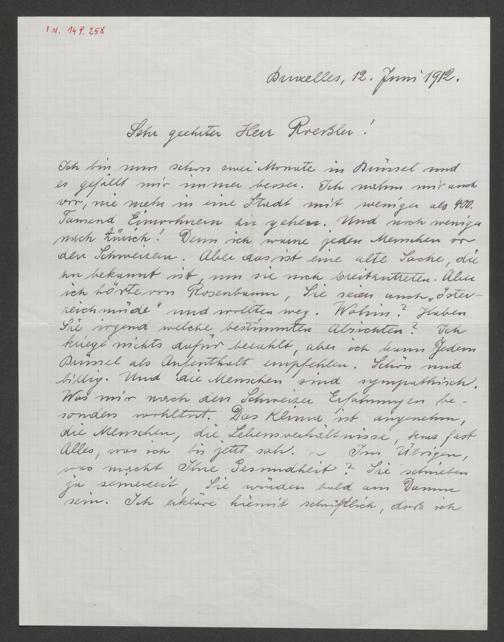 I.N. 149.258
Bruxelles, 12. Juni 1912.
Sehr geehrter Herr Roessler!
Ich bin nun schon zwei Monate in Brüssel und
es gefällt mir immer besser. Ich nahm mir auch
vor, nie mehr in eine Stadt mit weniger als 400.
Tausend Einwohnern zu gehen. Und noch weniger
nach Zürich! Denn ich warne jeden Menschen vor
den Schweizern. Aber das ist eine alte Sache, die
zu bekannt ist, um sie noch breitzutreten. Aber
ich hörte von Rosenbaum, Sie seien auch „öster-
reichmüde" und wollten weg. Wohin? Haben
Sie irgend welche bestimmten Absichten? Ich
kriege nichts dafür bezahlt, aber ich kann Jedem
Brüssel als Aufenthalt empfehlen. Schön und
billig. Und die Menschen sind sympathisch.
Was mir nach den Schweizer Erfahrungen be-
sonders wohltut. Das Klima ist angenehm,
die Menschen, die Lebensverhältnisse, und fast
Alles, was ich bis jetzt sah. ~ Im Übrigen,
was macht Ihre Gesundheit? Sie schrieben
ja seinerzeit, Sie würden bald am Damm
sein. Ich erkläre hiemit schriftlich, dass ich